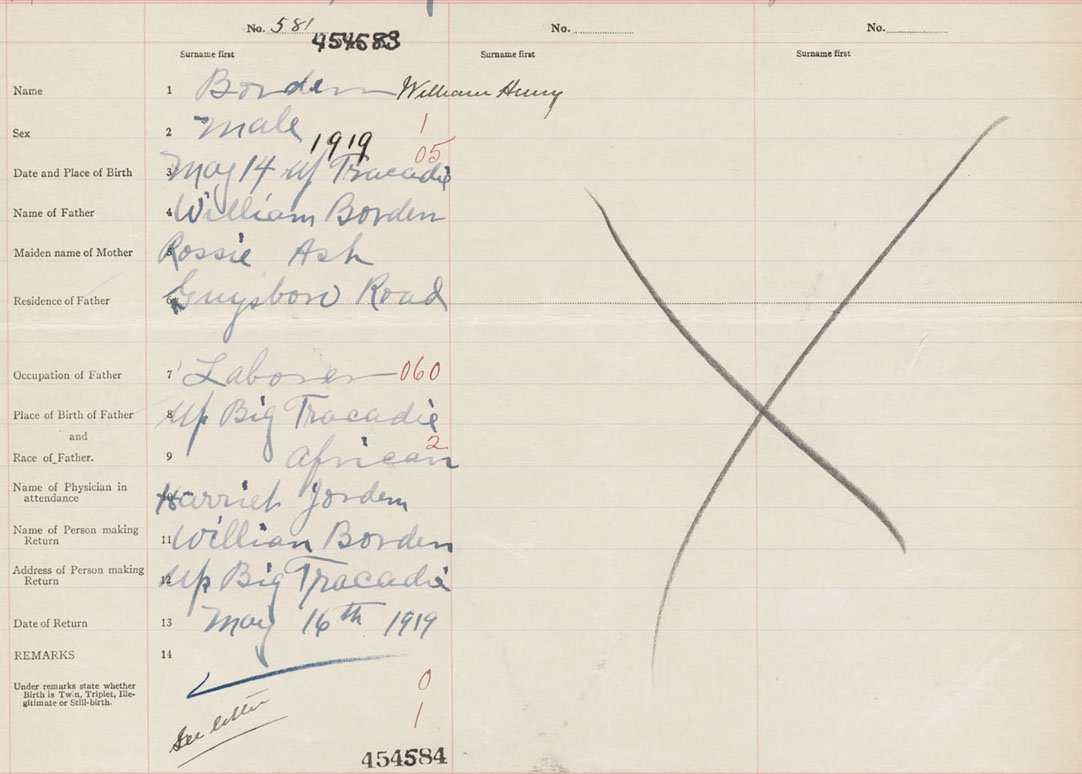 No. 581 No. No.
454583
Surname first Surname first Surname first
Name 1 Borden William Henry
Sex 2 Male 1
1919 05
Date and Place of Birth 3 May 14 up Tracadie
Name of Father 4 William Borden
Maiden name of Mother 5 Rossie Ash
Residence of Father 6 Guysboro Road
Occupation of Father 7 Laborer 060
Place of Birth of Father 8 up Big Tracadie
and
2
Race of Father. 9 African
Name of Physician in
attendance 10 Harriet Jorden
Name of Person making
Return 11 William Borden
Address of Person making
Return 12 up Big Tracadie
Date of Return 13 May 16th 1919
REMARKS 14
Under remarks state whether
Birth is Twin, Triplet, Ille-
gitimate or Still-birth.
0
1
See letter
454584